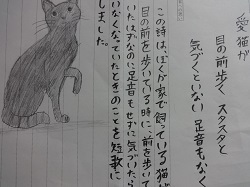 愛猫が
目の前歩く スタスタと
気づくといない 足音もなく
この詩は、ぼくが家で飼っている猫が
目の前を歩いている時に、前を歩いて
いたはずなのに足音もせずに気づいたら
いなくなっていたときのことを短歌に
しました。